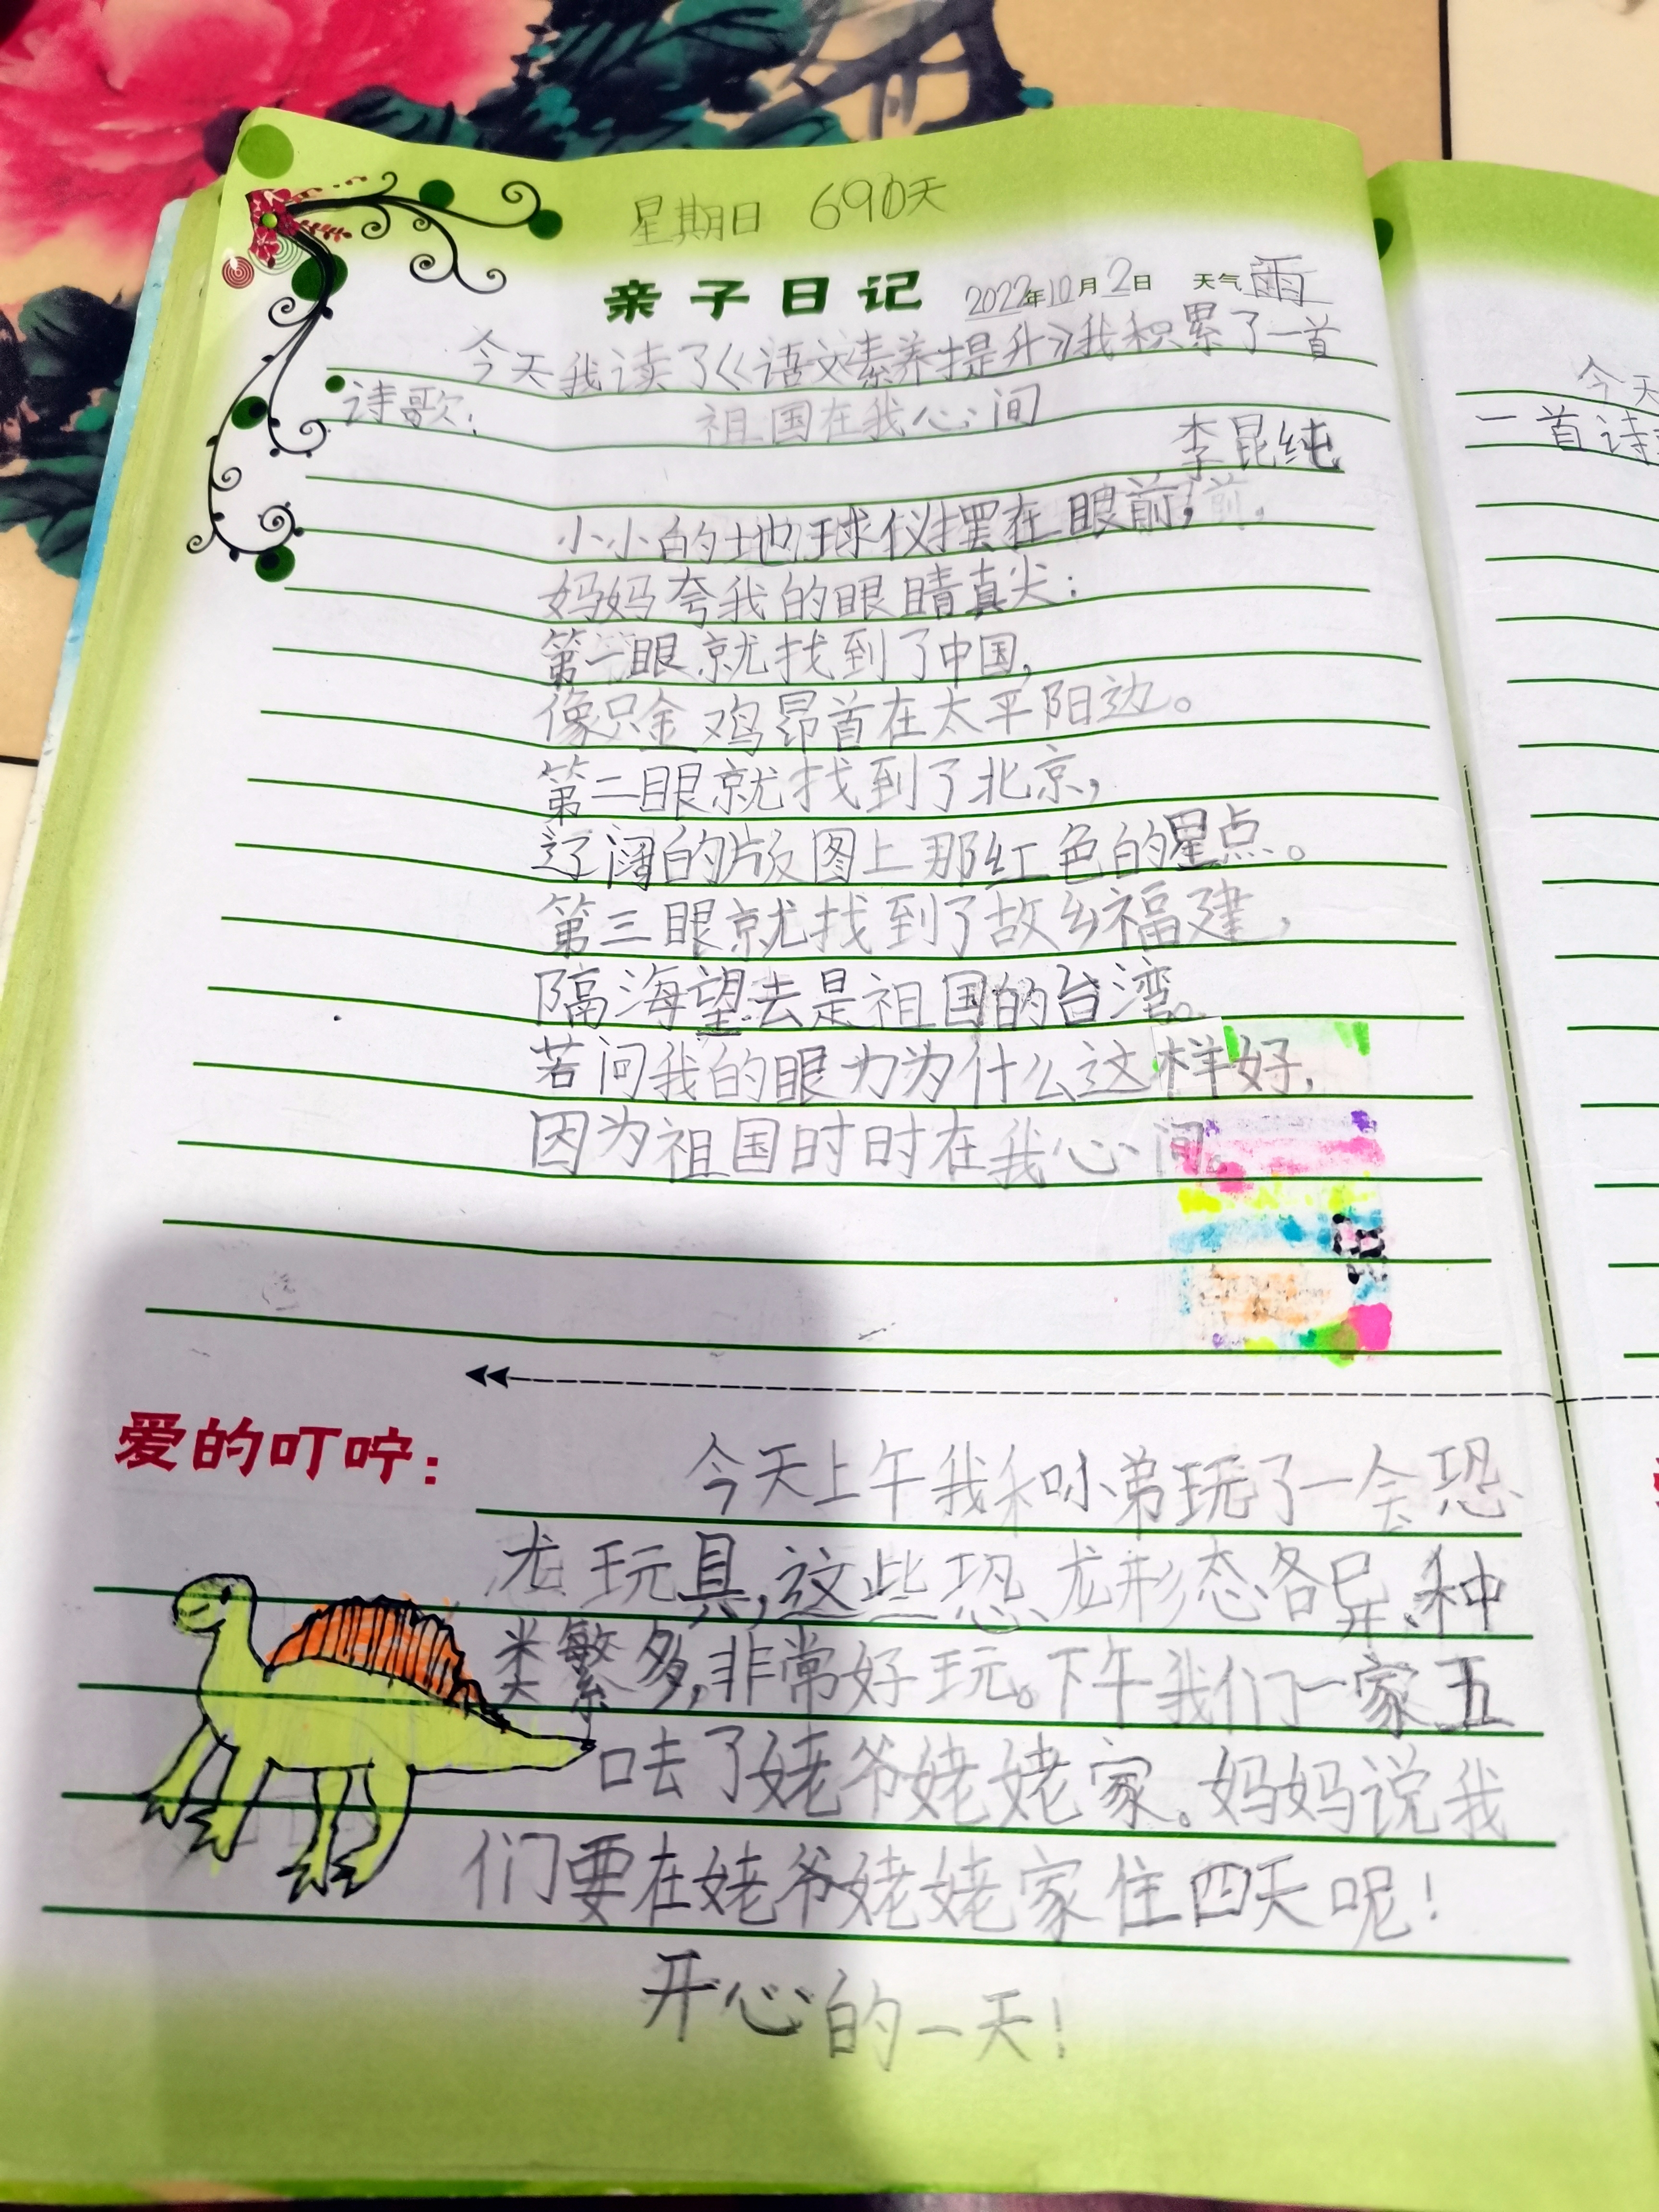 星期日 690天
亲子日记 2022年10月2日 天气 雨
今天我读了《语文素养提升》我积累了一首
诗歌: 祖国在我心间
李昆纯
小小的地球仪摆在眼前,
妈妈夸我的眼睛真尖:
第一眼就找到了中国,
像只金鸡昂首在太平阳边。
第二眼就找到了北京,
辽阔的版图上那红色的星点。
第三眼就找到了故乡福建,
隔海望去是祖国的台湾。
若问我的眼力为什么这样好,
因为祖国时时在我心间。
爱的叮咛:
今天上午我和小弟玩了一会恐
龙玩具,这些恐龙形态各异、种
类繁多,非常好玩。下午我们一家五
口去了姥爷姥姥家。妈妈说我
们要在姥爷姥姥家住四天呢!
开心的一天!
今天
一首诗